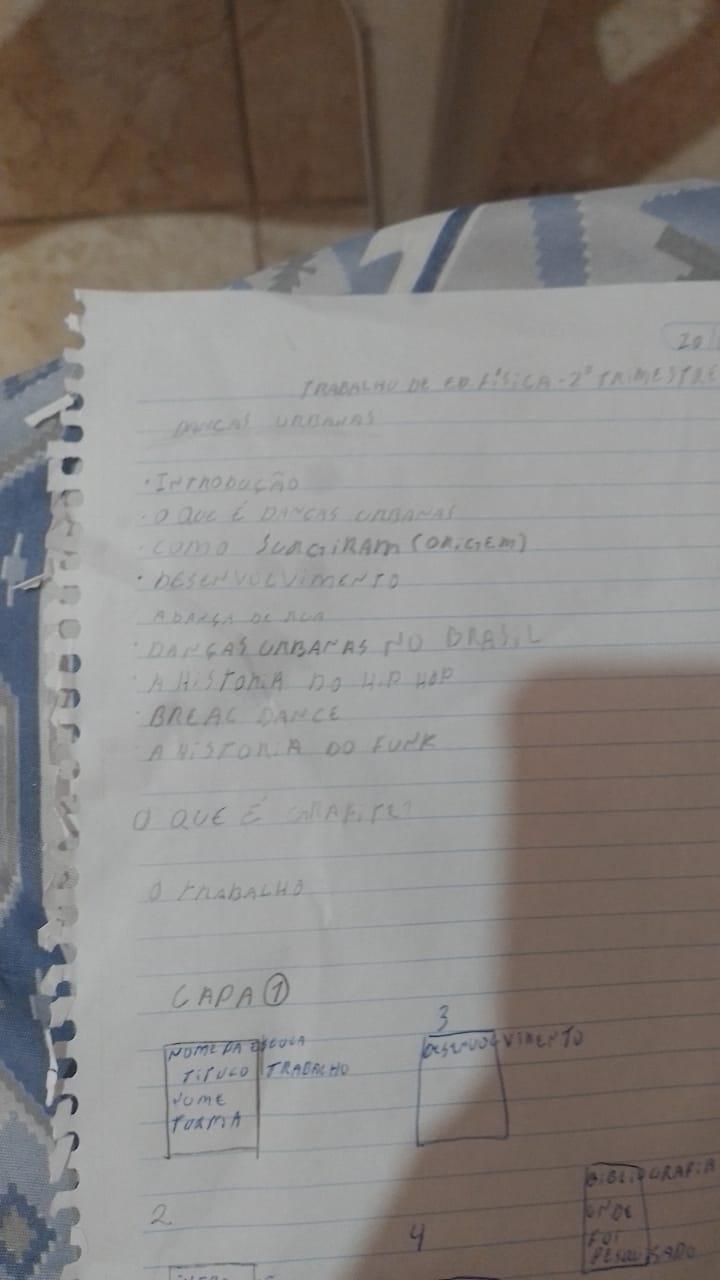 20
TRABALHO DE ED FÍSICA - 2º TRIMESTRE
DANÇAS URBANAS
· INTRODUÇÃO
· O QUE É DANÇAS URBANAS
· COMO SURGIRAM (ORIGEM)
· DESENVOLVIMENTO
A DANÇA DE RUA
· DANÇAS URBANAS NO BRASIL
· A HISTORIA DO HIP HOP
· BREAC DANCE
A HISTORIA DO FUNK
O QUE É GRAFITE?
O TRABALHO
CAPA ①
NOME DA ESCOLA
TITULO TRABALHO
NOME
TURMA
3
DESENVOLVIMENTO
2
4
BIBLIOGRAFIA
ONDE
FOI
PESQUISADO